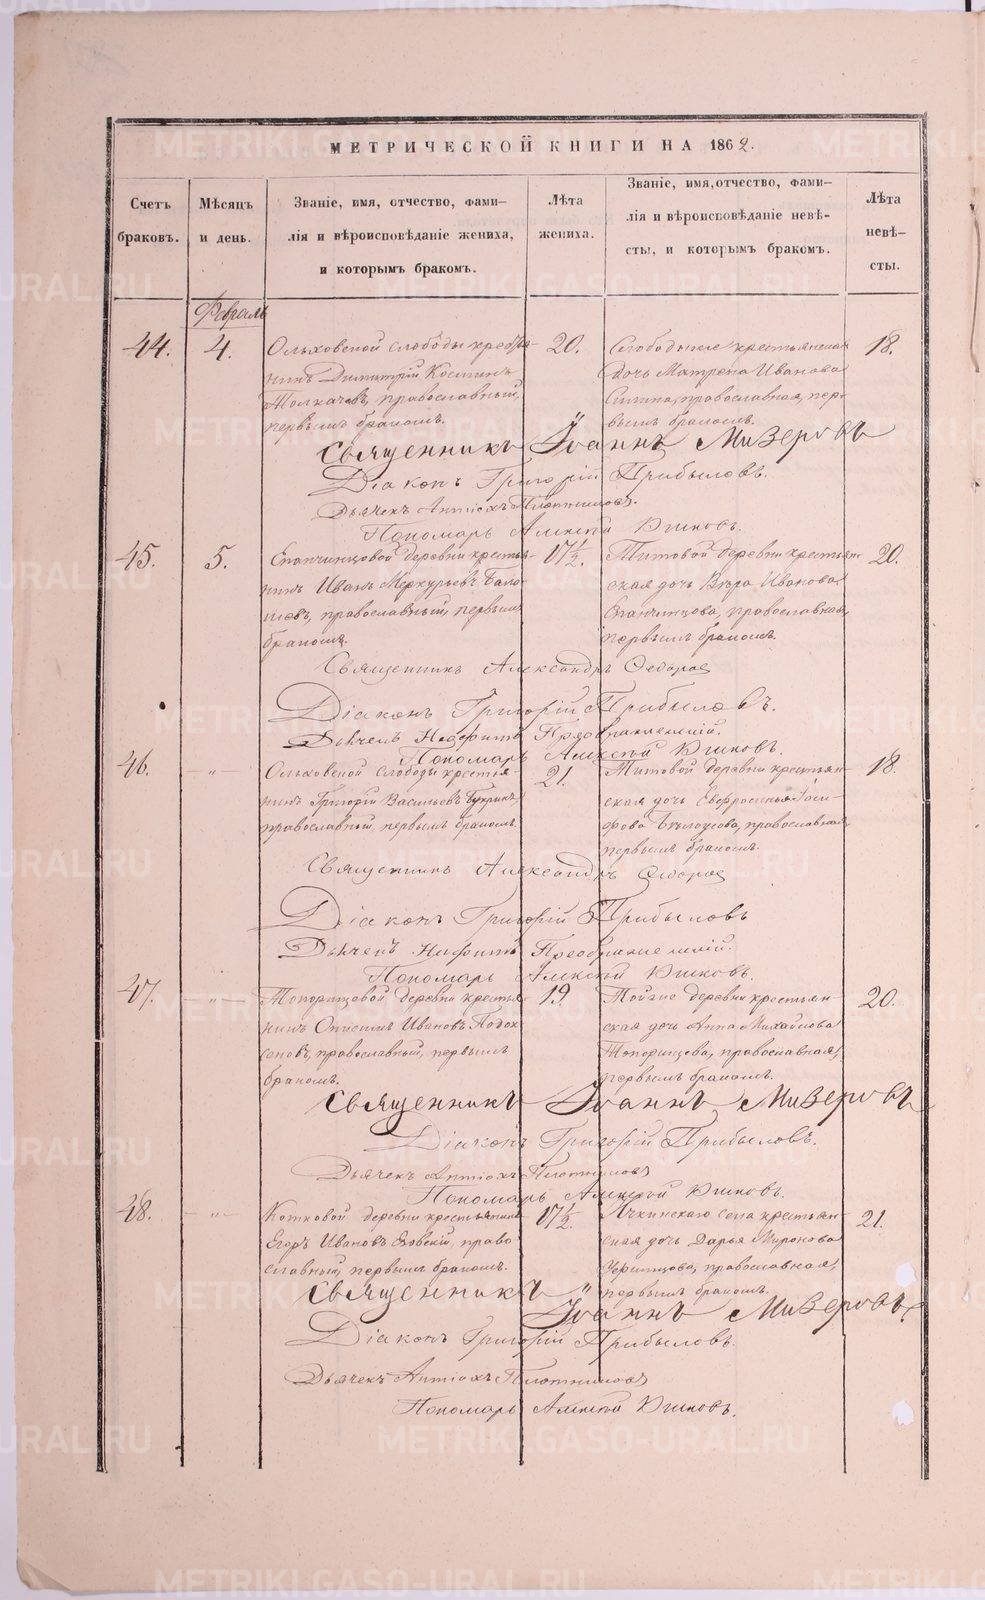 МЕТРИЧЕСКОЙ КНИГИ НА 1862.
Счетъ
браковъ.
Мѣсяцъ
и день.
Званіе, имя, отчество, фами-
лія и вѣроисповѣданіе жениха,
и которымъ бракомъ.
Лѣта
жениха.
Званіе, имя, отчество, фами-
лія и вѣроисповѣданіе невѣ-
сты, и которымъ бракомъ.
Лѣта
невѣ-
сты.
Февраль
44.
4.
Ольховской слободы крестья-
нинъ Димитрій Косминъ
Толкачевъ, православный,
первымъ бракомъ.
20.
Слободы крестьянская
дочь Матрена Иванова
православная, пер-
вымъ бракомъ.
18.
Священникъ Іоаннъ Мизеровъ
Діаконъ Григорій Прибыловъ.
Дьячекъ Антіохъ Плотниковъ.
Пономарь Алексѣй Юшковъ.
45.
5.
Епанчинцовой деревни крестья-
нинъ Иванъ Меркурьевъ
православный, первымъ
бракомъ.
17½.
Титовой деревни крестьян-
ская дочь Вѣра Иванова
Епанчинцова, православная,
первымъ бракомъ.
20.
Священникъ Александръ Федоровъ
Діаконъ Григорій Прибыловъ.
Дьячекъ Преображенскій.
Пономарь Алексѣй Юшковъ.
46.
-"-
Ольховской слободы крестья-
нинъ Григорій Васильевъ
православный, первымъ бракомъ.
21.
Титовой деревни крестьян-
ская дочь Евфросинья Іоси-
фова Бѣлоусова, православная,
первымъ бракомъ.
18.
Священникъ Александръ Федоровъ
Діаконъ Григорій Прибыловъ
Дьячекъ Преображенскій.
Пономарь Алексѣй Юшковъ.
47.
-"-
Топорищовой деревни крестья-
нинъ Онисимъ Ивановъ
православный, первымъ
бракомъ.
19.
Тойже деревни крестьян-
ская дочь Анна Михайлова
Топорищева, православная,
первымъ бракомъ.
20.
Священникъ Іоаннъ Мизеровъ
Діаконъ Григорій Прибыловъ.
Дьячекъ Антіохъ Плотниковъ
Пономарь Алексѣй Юшковъ.
48.
-"-
Котковой деревни крестьянинъ
Егоръ Ивановъ право-
славный, первымъ бракомъ.
17½.
села крестьян-
ская дочь Дарья Миронова
православная,
первымъ бракомъ.
21.
Священникъ Іоаннъ Мизеровъ
Діаконъ Григорій Прибыловъ.
Дьячекъ Антіохъ Плотниковъ
Пономарь Алексѣй Юшковъ.
METRIKI.GASO-URAL.RU